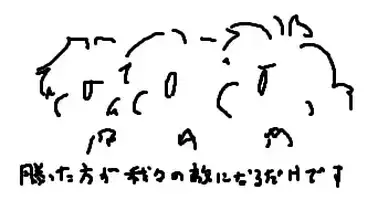 勝った方が我々の敵になるだけです